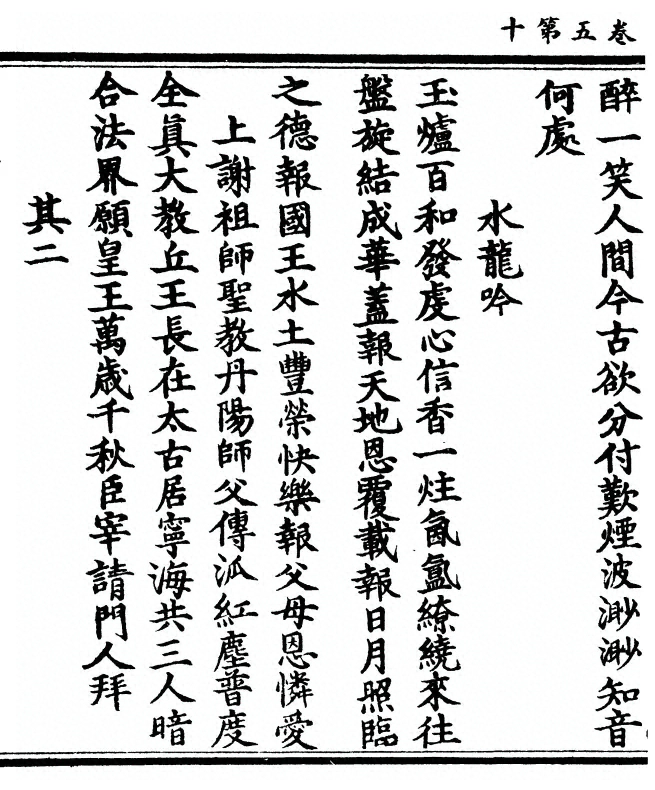 卷五第十
醉一笑人間今古欲分付歎煙波渺渺知音
何處
水龍吟
玉爐百和發虔心信香一炷氤氳繚繞來往
盤旋結成華蓋報天地恩覆載報日月照臨
之德報國王水土豐榮快樂報父母恩憐愛
上謝祖師聖教丹陽師父傳泒紅塵普度
全眞大教丘王長在太古居寧海共三人暗
合法界願皇王萬歲千秋臣宰請門人拜
其二